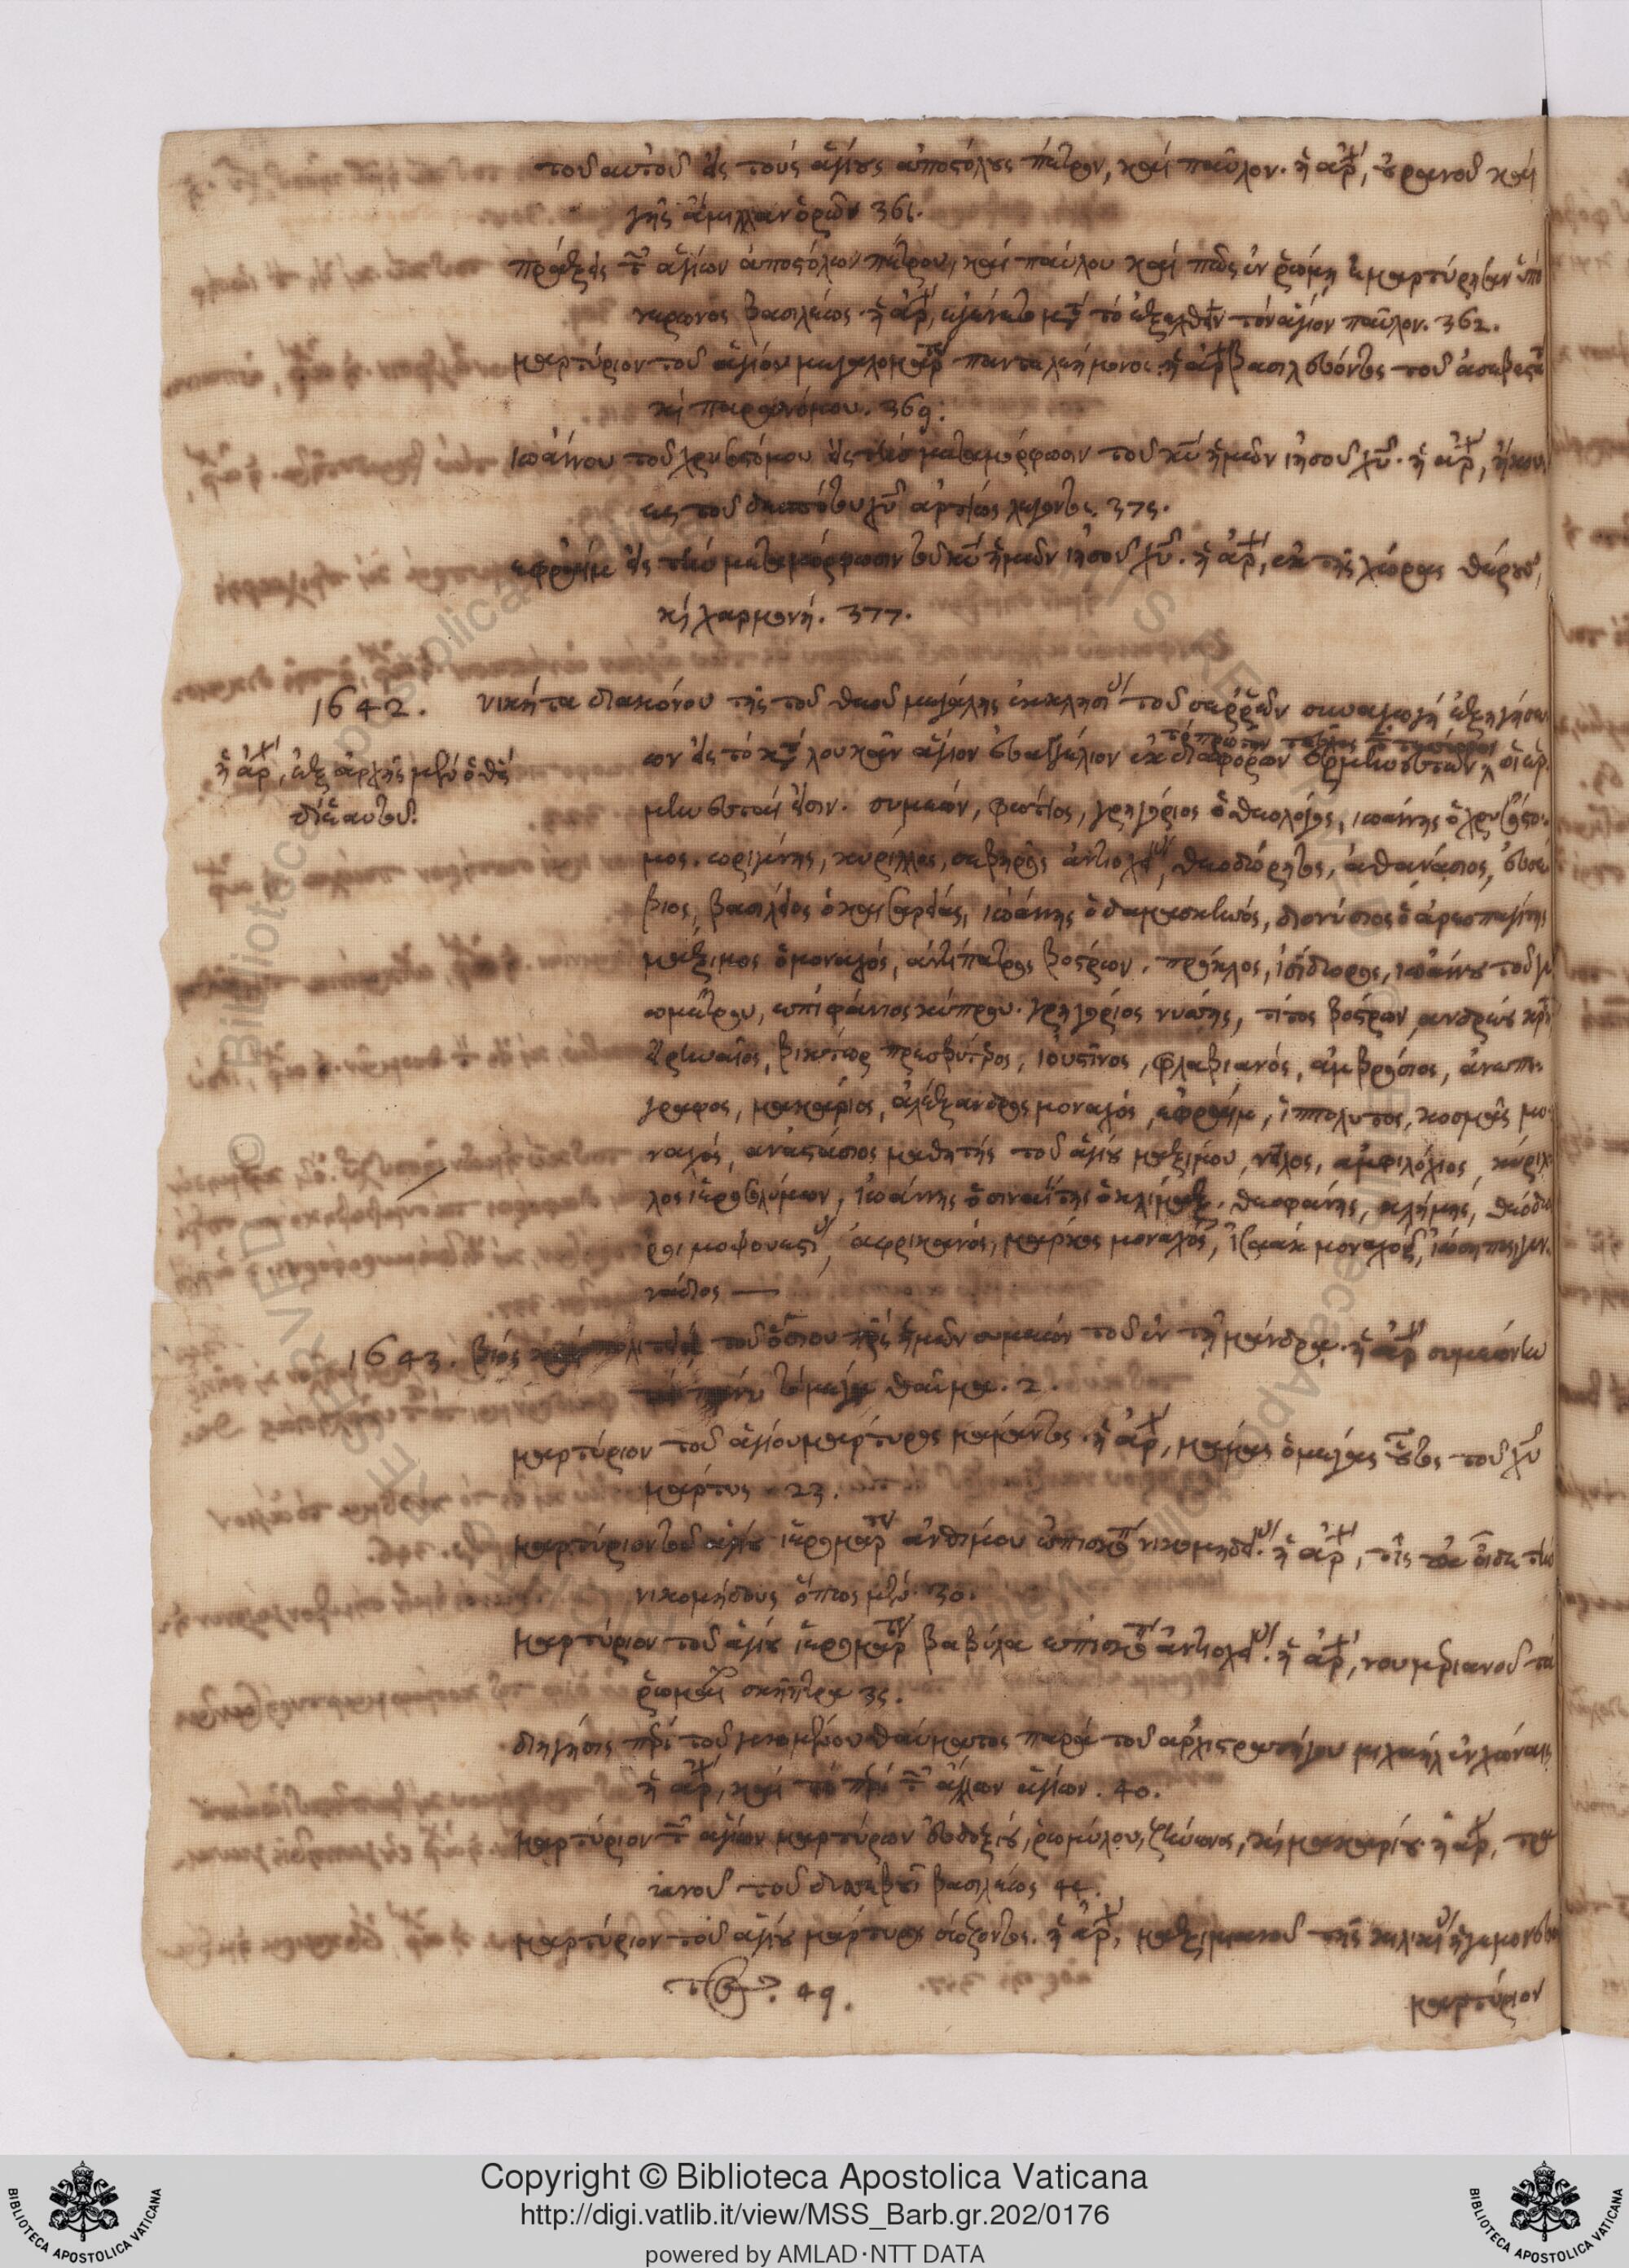 τοῦ αὐτοῦ εἰς τοὺς ἁγίους ἀποστόλους πέτρον, καὶ παῦλον. ἡ ἀρχ, οὐρανοῦ καὶ
γῆς ἅμιλλαν ὁρῶν 361.
πράξεις τῶν ἁγίων ἀποστόλων πέτρου, καὶ παύλου καὶ πῶς ἐν ῥώμῃ ἐμαρτύρησαν ὑπὸ
νέρωνος βασιλέως. ἡ ἀρχ, ἐγένετο μετὰ τὸ ἐξελθεῖν τὸν ἅγιον παῦλον. 362.
μαρτύριον τοῦ ἁγίου μεγαλομάρτ παντελεήμονος. ἡ ἀρχ βασιλεύοντος τοῦ ἀσεβεστ
καὶ παρανόμου. 369.
ἰωάννου τοῦ χρυσοστόμου εἰς τὴν μεταμόρφωσιν τοῦ κυ ἡμῶν ἰησοῦ χυ. ἡ ἀρχ,
τοῦ δεσπότου χυ ἀρτίως λέγοντος. 375.
ἐφραὶμ εἰς τὴν μεταμόρφωσιν τοῦ κυ ἡμῶν ἰησοῦ χυ. ἡ ἀρχ, ἐκ τῆς χώρας θέρους,
καὶ χαρμονή. 377.
1642. νικήτα διακόνου τῆς τοῦ θεοῦ μεγάλης ἐκκλησί τοῦ σερρῶν συναγωγὴ ἐξηγήσε
ἡ ἀρχ, ἐξ ἀρχῆς μὲν ὁ θς
δι' ἑαυτοῦ.
ων εἰς τὸ κατὰ λουκᾶν ἅγιον εὐαγγέλιον ἐκ διαφόρων ἑρμηνευτῶν οἱ ἑρ
μηνευταί εἰσιν. συμεών, φώτιος, γρηγόριος ὁ θεολόγος, ἰωάννης ὁ χρυσόστο
μος. ὠριγένης, κύριλλος, σεβῆρος ἀντιοχεί, θεοδώρητος, ἀθανάσιος, εὐσέ
βιος, βασίλειος ὁ καισαρείας, ἰωάννης ὁ δαμασκηνός, διονύσιος ὁ ἀρεοπαγίτης
μάξιμος ὁ μοναχός, ἀντίπατρος βόστρων. πρόκλος, ἰσίδωρος, ἰωάννου τοῦ γε
ωμέτρου, ἐπιφάνιος κύπρου. γρηγόριος νύσσης, τίτος βόστρων, ἀνδρέου κρή
εἰρηναῖος, βίκτωρ πρεσβύτερος, ἰουστῖνος, φλαβιανός, ἀμβρόσιος, ἀνεπι
γραφος, μακάριος, ἀλέξανδρος μοναχός, ἐφραίμ, ἱππόλυτος, κοσμᾶς μο
ναχός, ἀναστάσιος μαθητὴς τοῦ ἁγίου μαξίμου, νεῖλος, ἀμφιλόχιος, κύριλ
λος ἱεροσολύμων, ἰωάννης ὁ σιναΐτης ὁ κλίμαξ. θεοφάνης, κλήμης, θεόδω
ρος μοψουεστί, ἀφρικανός, μάρκος μοναχός, ἰσαὰκ μοναχοῦ, ἰώσηπος, γεν
νάδιος —
1643. βίος καὶ πολιτεία τοῦ ὁσίου πρς ἡμῶν συμεὼν τοῦ ἐν τῇ μάνδρᾳ. ἡ ἀρχ συμεώνην
τὸν πάνυ τὸ μέγα θαῦμα. 2.
μαρτύριον τοῦ ἁγίου μάρτυρος μάμαντος. ἡ ἀρχ, μάμας ὁ μέγας οὗτος τοῦ χυ
μάρτυς 23.
μαρτύριον τοῦ ἁγίου ἱερομάρτ ἀνθίμου ἐπισκόπ νικομηδεί. ἡ ἀρχ, τίς οὐκ οἶδε τὴν
νικομήδους ὅπως μὲν. 30.
μαρτύριον τοῦ ἁγίου ἱερομάρτ βαβύλα ἐπισκόπ ἀντιοχεί. ἡ ἀρχ, νουμεριανοῦ τὰ
ῥωμαί σκῆπτρα 35.
διήγησις περὶ τοῦ γενομένου θαύματος παρὰ τοῦ ἀρχιστρατήγου μιχαὴλ ἐν χώναις.
ἡ ἀρχ, καὶ τὰ περὶ τῶν ἄλλων ἁγίων. 40.
μαρτύριον τῶν ἁγίων μαρτύρων εὐδοξίου, ῥωμύλου, ζήνωνος, καὶ μακαρίου. ἡ ἀρχ, τρα
ϊανοῦ τοῦ δυσσεβοῦς βασιλέως 44.
μαρτύριον τοῦ ἁγίου μάρτυρος σώζοντος. ἡ ἀρχ, μαξιμιανοῦ τῆς κιλικί ἡγεμονεύον
τος. 49.
μαρτύριον
Copyright © Biblioteca Apostolica Vaticana
http://digi.vatlib.it/view/MSS_Barb.gr.202/0176
powered by AMLAD·NTT DATA
BIBLIOTECA APOSTOLICA VATICANA
BIBLIOTECA APOSTOLICA VATICANA